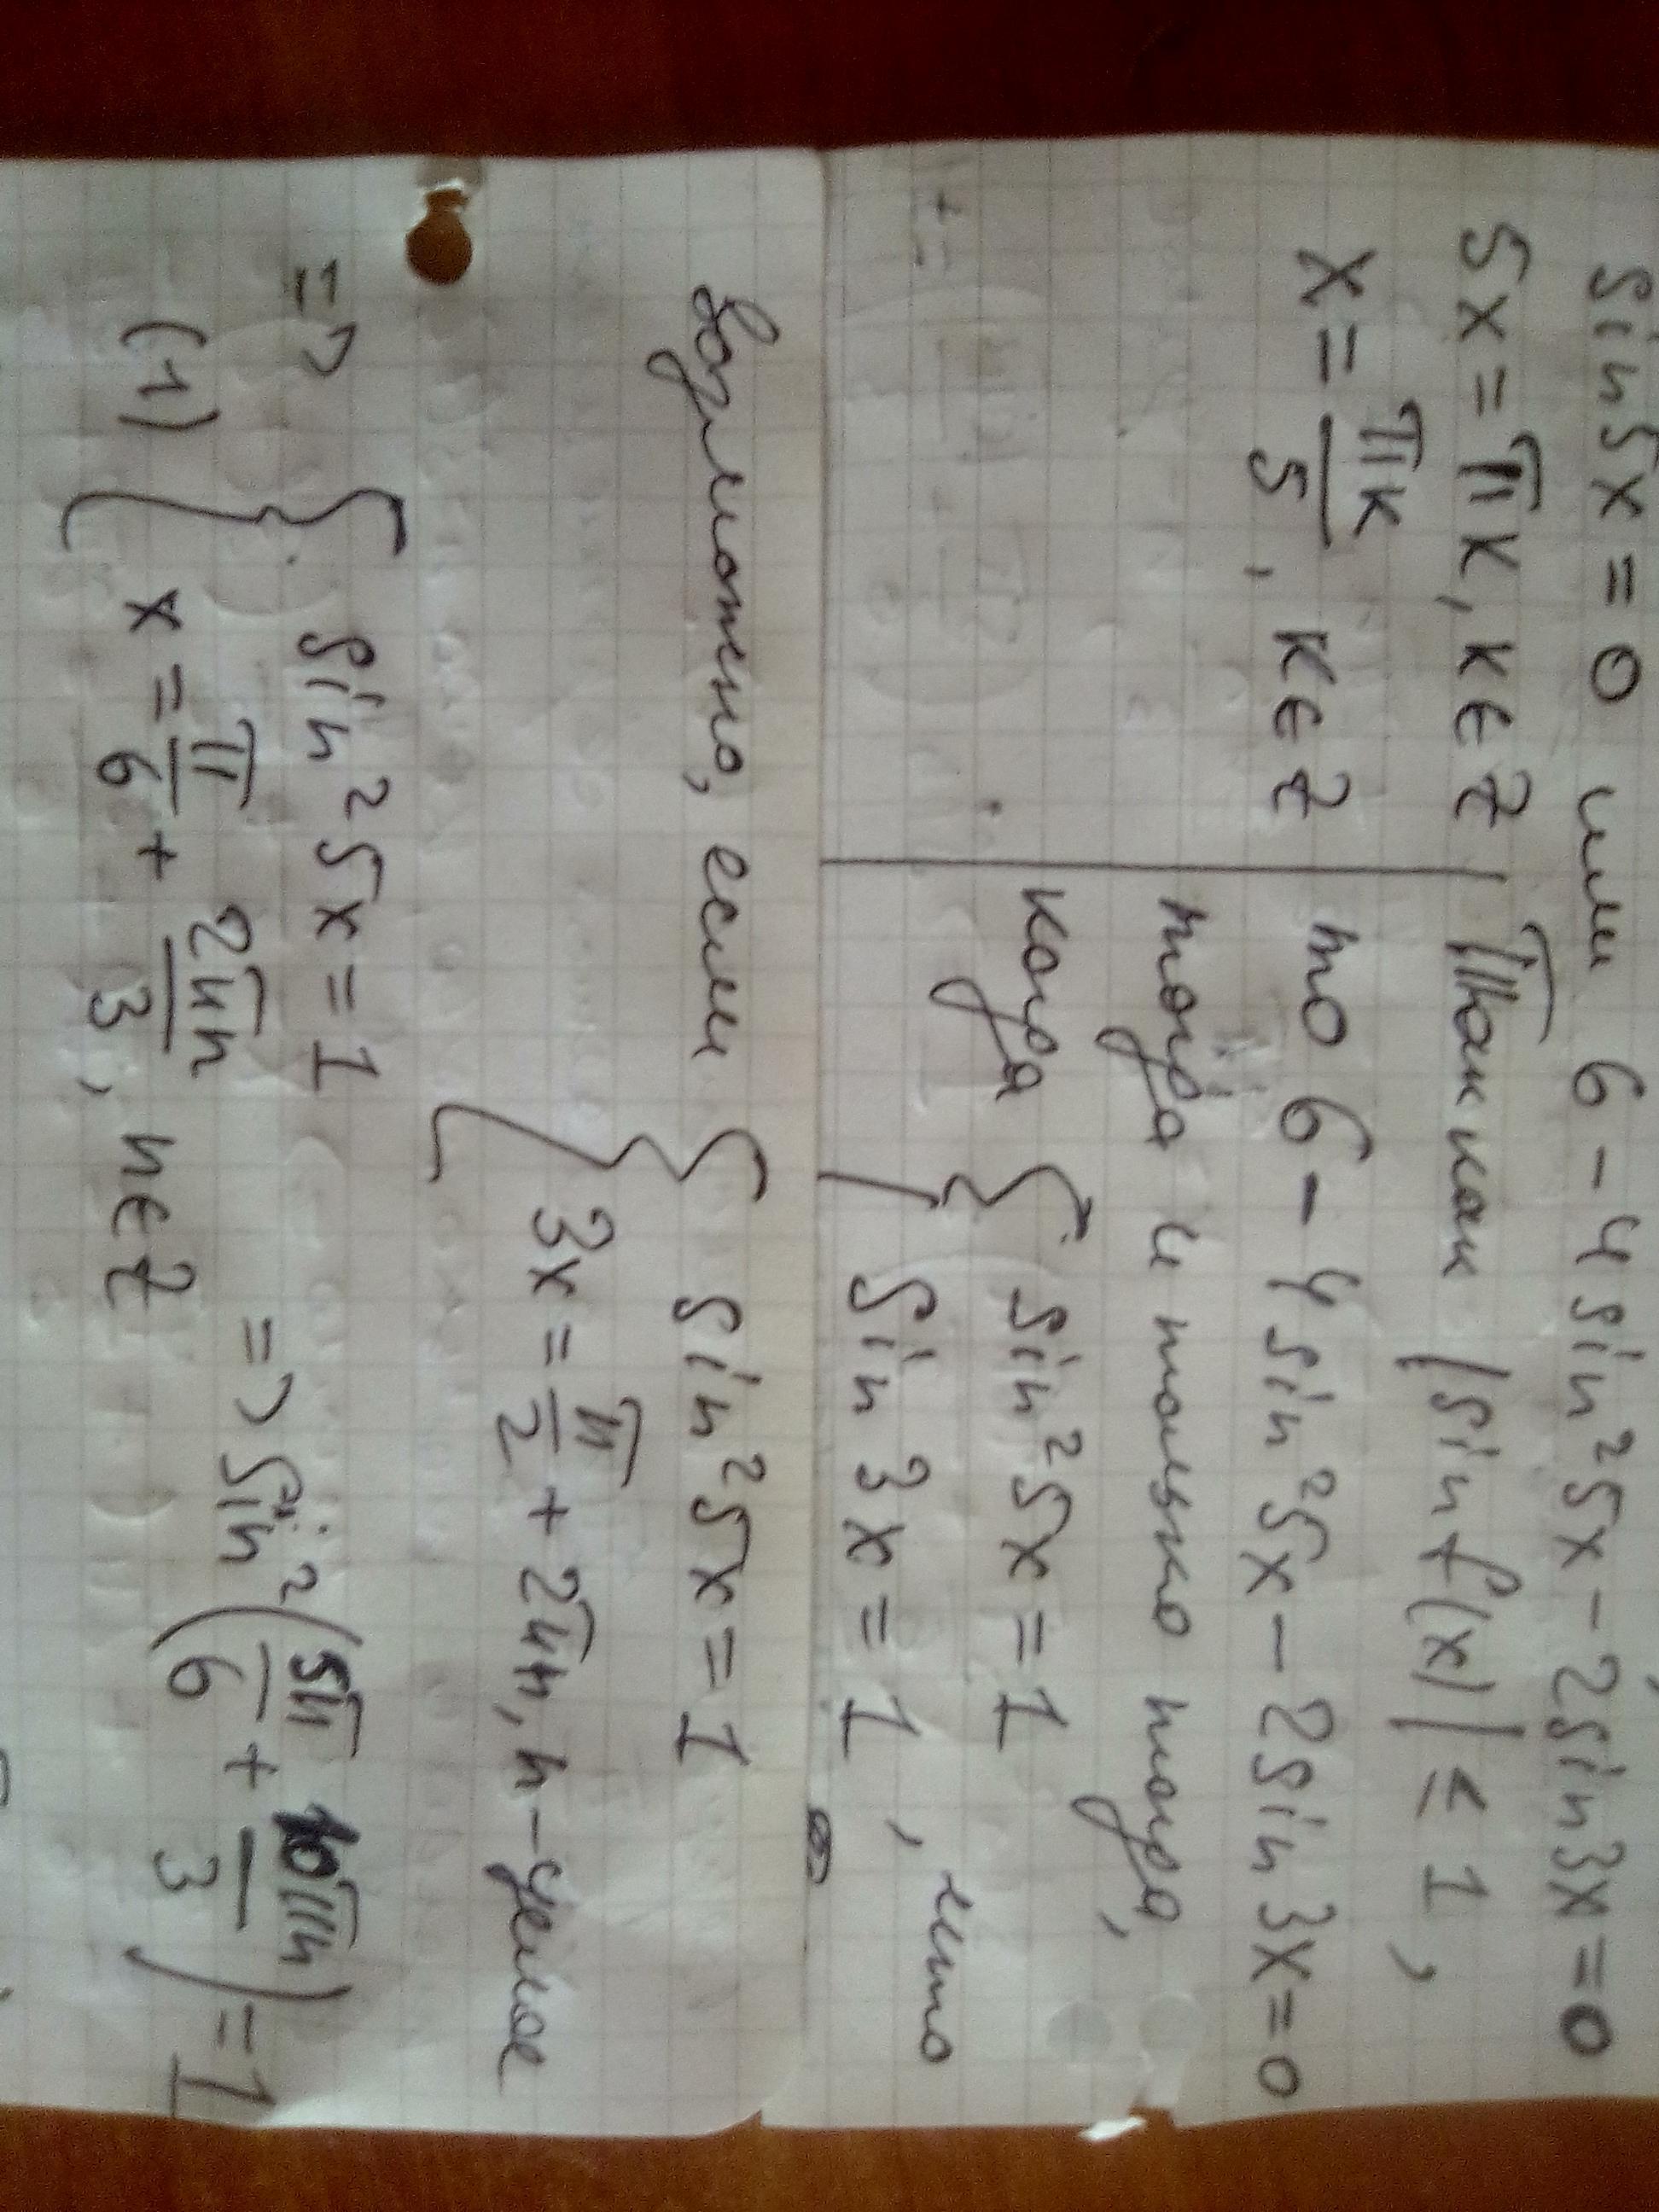 sin5x=0 или 6-4sin²5x-2sin3x=0
5x=πk, k∈Z
x=πk/5, k∈Z
Так как |sinf(x)|≤1,
то 6-4sin²5x-2sin3x=0
тогда и только тогда,
когда { sin²5x=1
sin3x=1, что
возможно, если { sin²5x=1
3x=π/2+2πn, n-целое
=> { sin²5x=1
(1) x=π/6+2πn/3, n∈Z
=> sin²(5π/6+10πn/3)=1